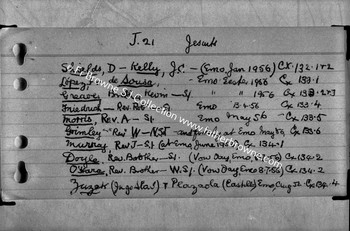 J. 21 Jesuits
D - Kelly, J.C. - (Emo Jan 1956) CX.132.1+2
Lopez, de Sousa, - Emo 1956 Cx 133.1
Greaves Kevin - S.J. " " 1956 Cx 133.2+3
Friedrich - Rev. Emo 15-4-56 Cx 133.4
Morris, Rev. A - S.J. Emo May 56 - Cx 133.5
Grimley Rev W - N.S.J. Emo May 56, Cx 133.6
Murray, Rev J - S.J. (at Emo, June 1956) Cx 134.1
Doyle, Rev. Brother - S.J. (Vow Day Emo, 56) Cx 134.2
O'Hara, Rev. Brother - W.S.J. (Vow Day Emo 8-7-56) Cx 134.2
Fuzek (Jugo Slav) + Plazaola (Castile) Emo Aug 57 Cx 134.4